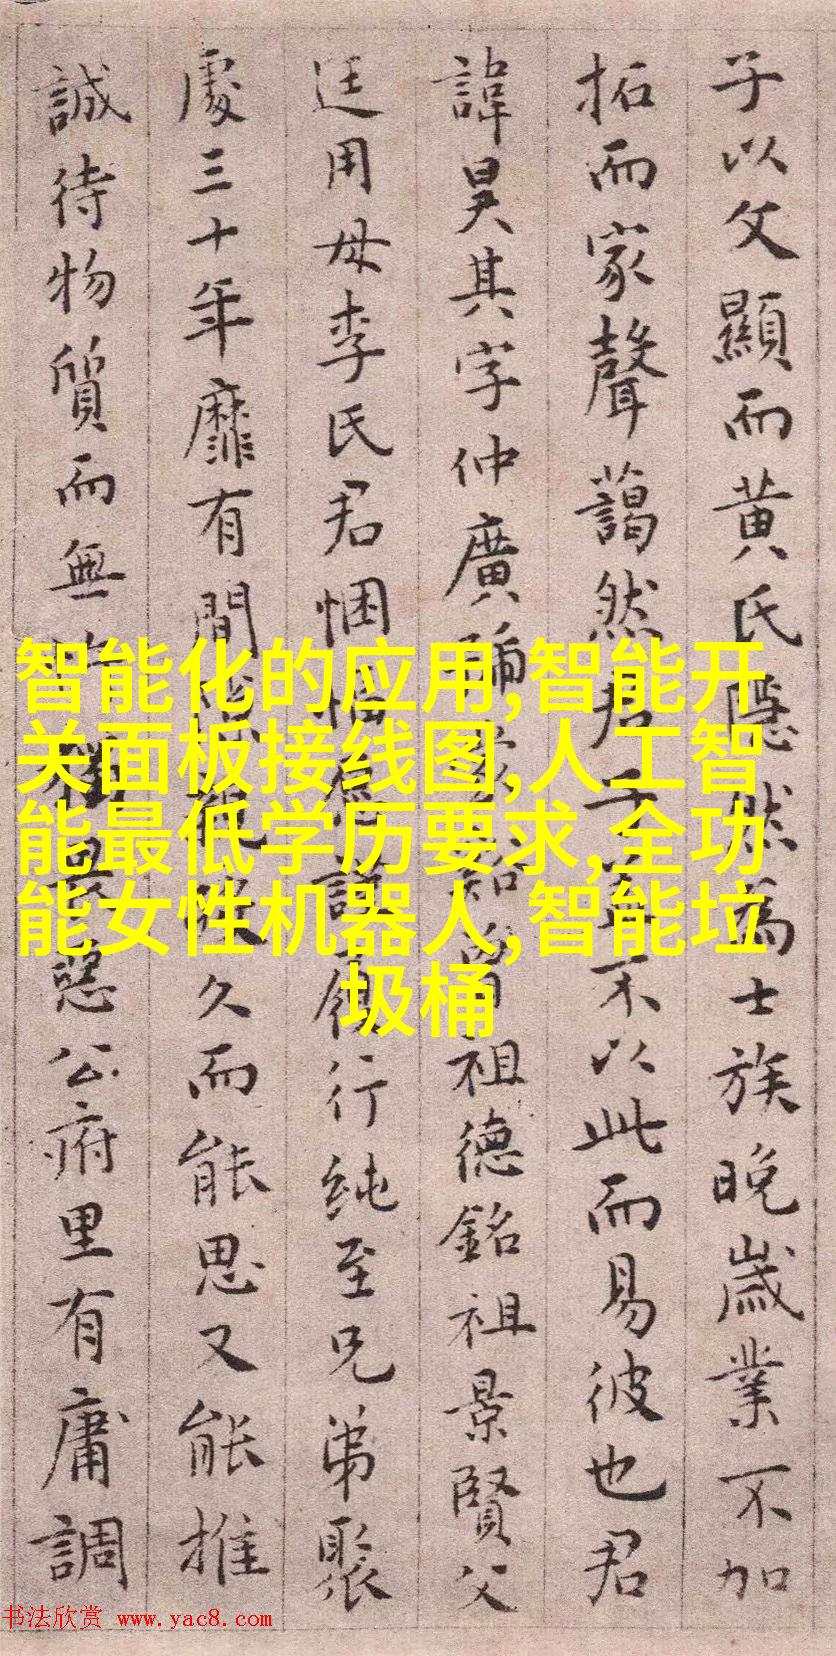 子以父顯而黄氏隱然爲士族晚歲業不加
拓而家聲藹然君子盖不以此而易彼也君
諱昊其字仲廣 祖德銘祖景賢父
廷用母李氏君悃愊 謹願行纯至兄弟聚
處三十年靡有間 久而能思又能推
誠待物質而無 公府里有庸調
智能化的应用,智能开
关面板接线图,人工智
能最低学历要求,全功
能女性机器人,智能垃
圾桶
书法欣赏 www.yac8.com